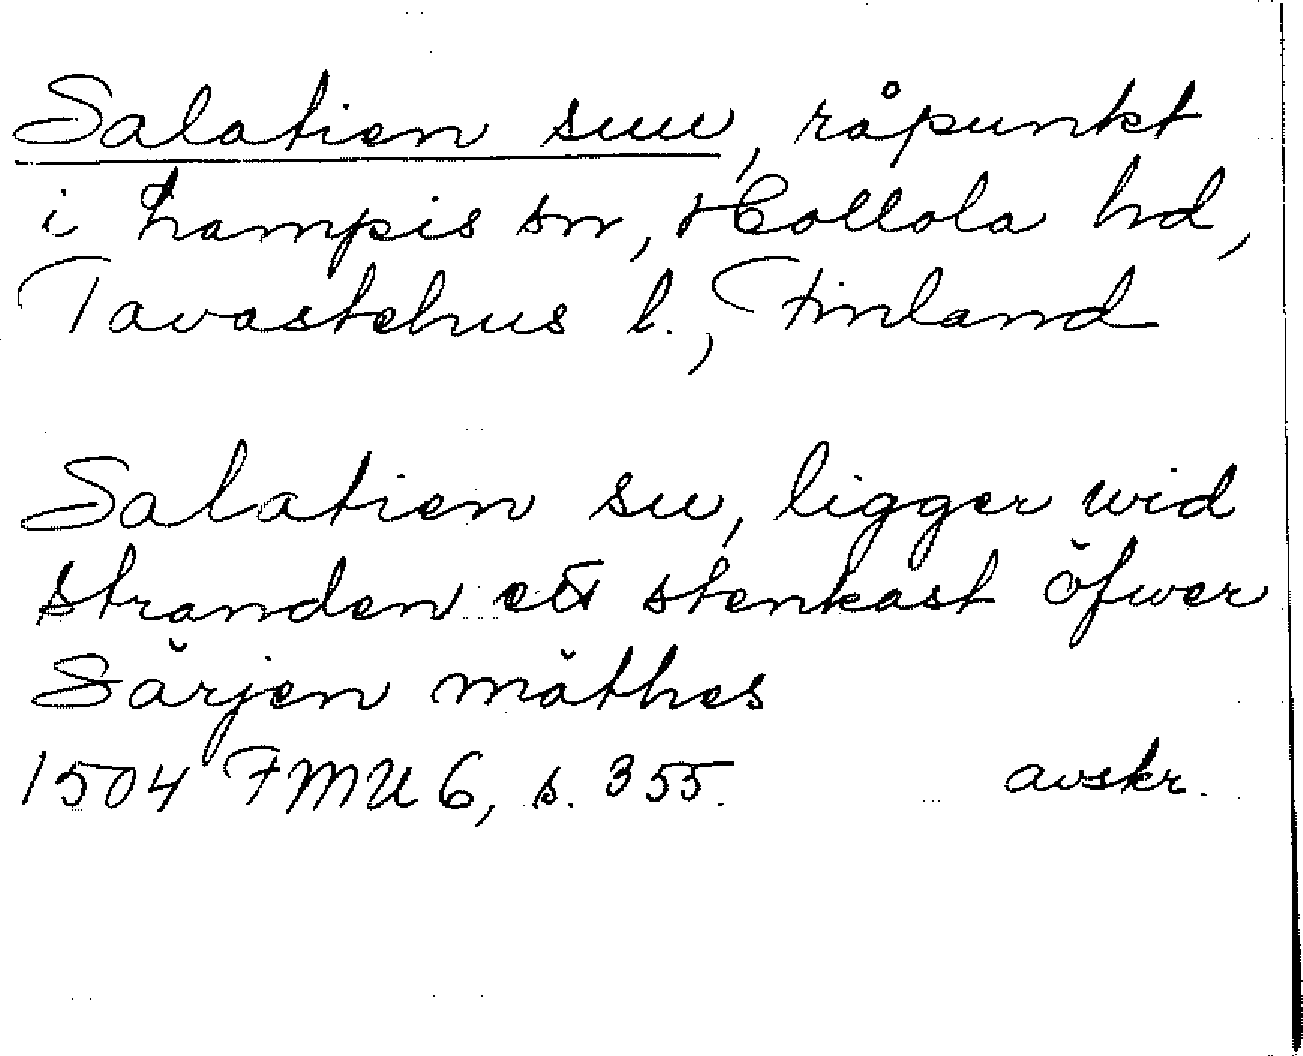 Salatien suu, råpunkt
i Lampis sn, Hollola hd,
Tavastehus l., Finland
Salatien su, ligger wid
stranden ett stenkast öfwer
Särjen mäthes
1504 FMU 6, s. 355. avskr.